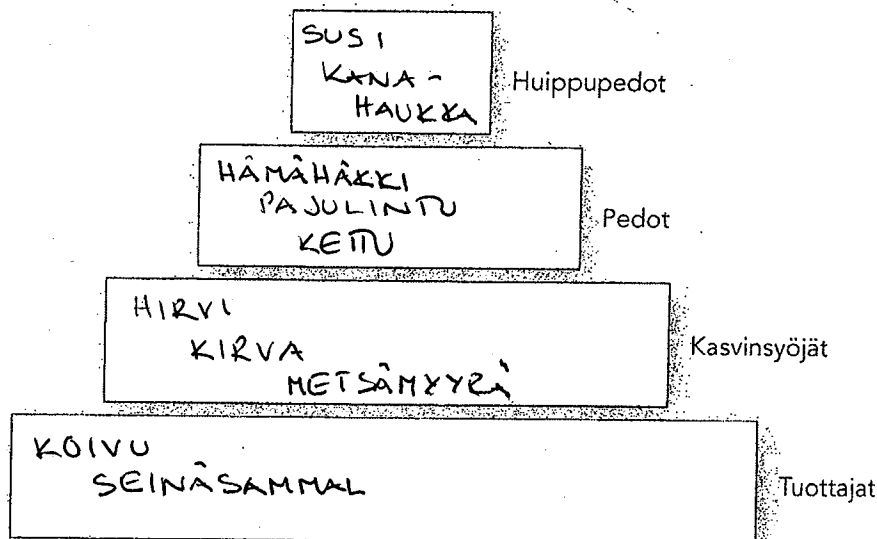 SUSI
KANA-
HAUKKA
Huippupedot
HÄMÄHÄKKI
PAJULINTU
KETTU
Pedot
HIRVI
KIRVA
METSÄMYYRÄ
Kasvinsyöjät
KOIVU
SEINÄSAMMAL
Tuottajat